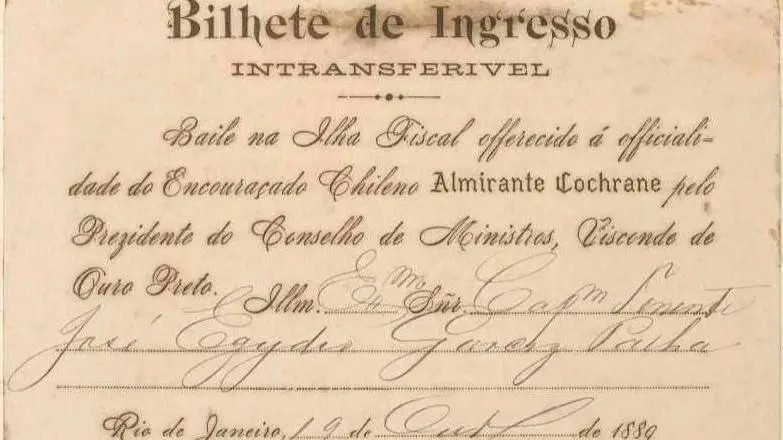 Bilhete de Ingresso
INTRANSFERIVEL
Baile na Ilha Fiscal offerecido á officiali-
dade do Encouraçado Chileno Almirante Cochrane pelo
Prezidente do Conselho de Ministros, Visconde de
Ouro Preto. Illm. Exm Sñr. Capm Tenente
José Egydio Garcez Palha
Rio de Janeiro, 19 de de 1889